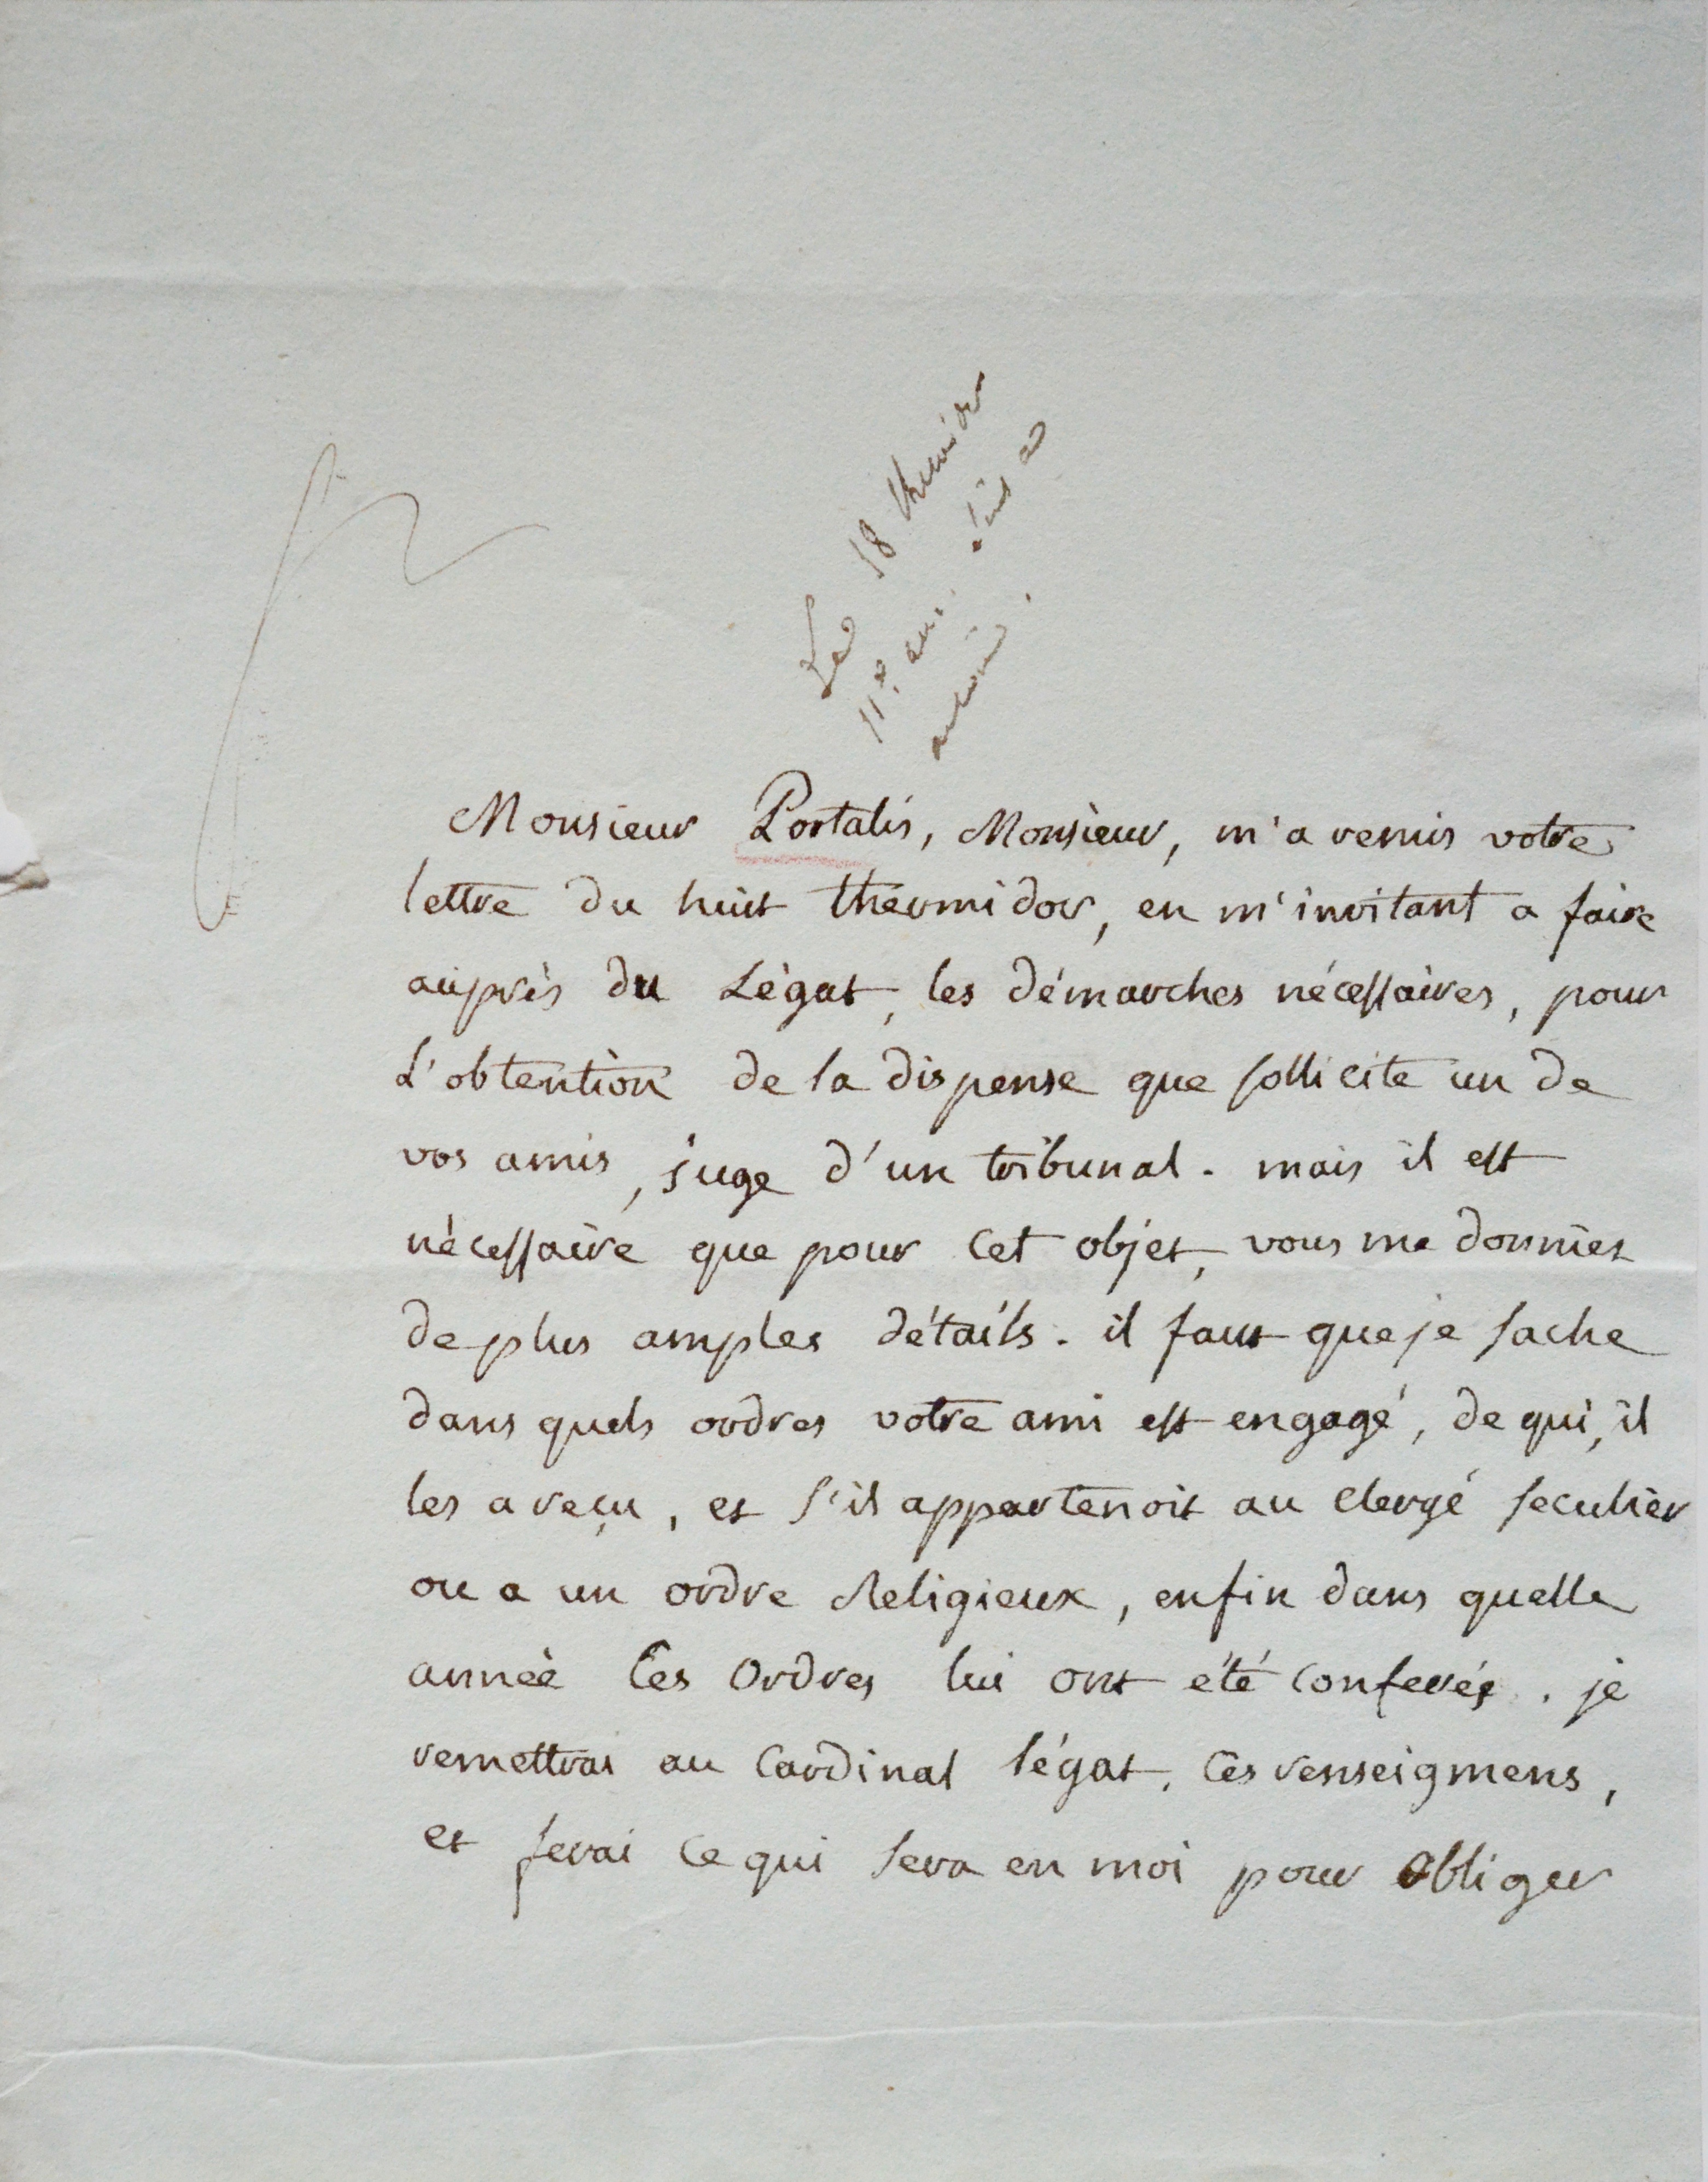 Le 18 thermidor
11e. an.
Monsieur Portalis, Monsieur, m'a remis votre
lettre du huit thermidor, en m'invitant a faire
auprès du Légat, les démarches nécessaires, pour
L'obtention de la dispense que sollicite un de
vos amis, juge d'un tribunal. mais il est
nécessaire que pour cet objet, vous me donniez
de plus amples détails. il faut que je sache
dans quels ordres votre ami est engagé, de qui, il
les a reçu, et s'il appartenoit au clergé seculier
ou a un ordre Religieux, enfin dans quelle
année Ces Ordres lui ont été conferés. je
remettrai au Cardinal légat, Ces renseigmens,
et ferai ce qui sera en moi pour obliger